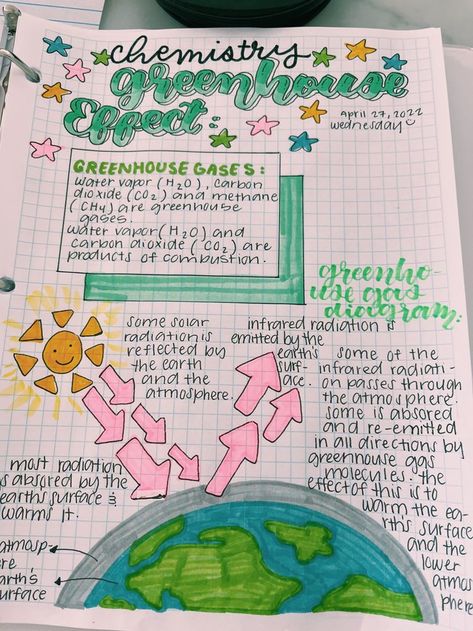 chemistry
greenhouse
Effect:
April 27, 2022
wednesday
GREENHOUSE GASES:
water vapor (H2O), carbon
dioxide (CO2) and methane
(CH4) are greenhouse
gases.
water vapor (H2O) and
carbon dioxide (CO2) are
products of combustion.
greenho-
use gas
diagram:
some solar
radiation is
reflected by
the earth
and the
atmosphere.
infrared radiation is
emitted by the
earth's
surf-
ace.
some of the
infrared radiati-
on passes through
the atmosphere.
some is absored
and re-emitted
in all directions by
greenhouse gas
molecules. the
effect of this is to
warm the ea-
rth's surface
and the
lower
atmos
phere
most radiation
is absorbed by the
earth's surface &
warms it.
atmosp-
ere
earth's
surface